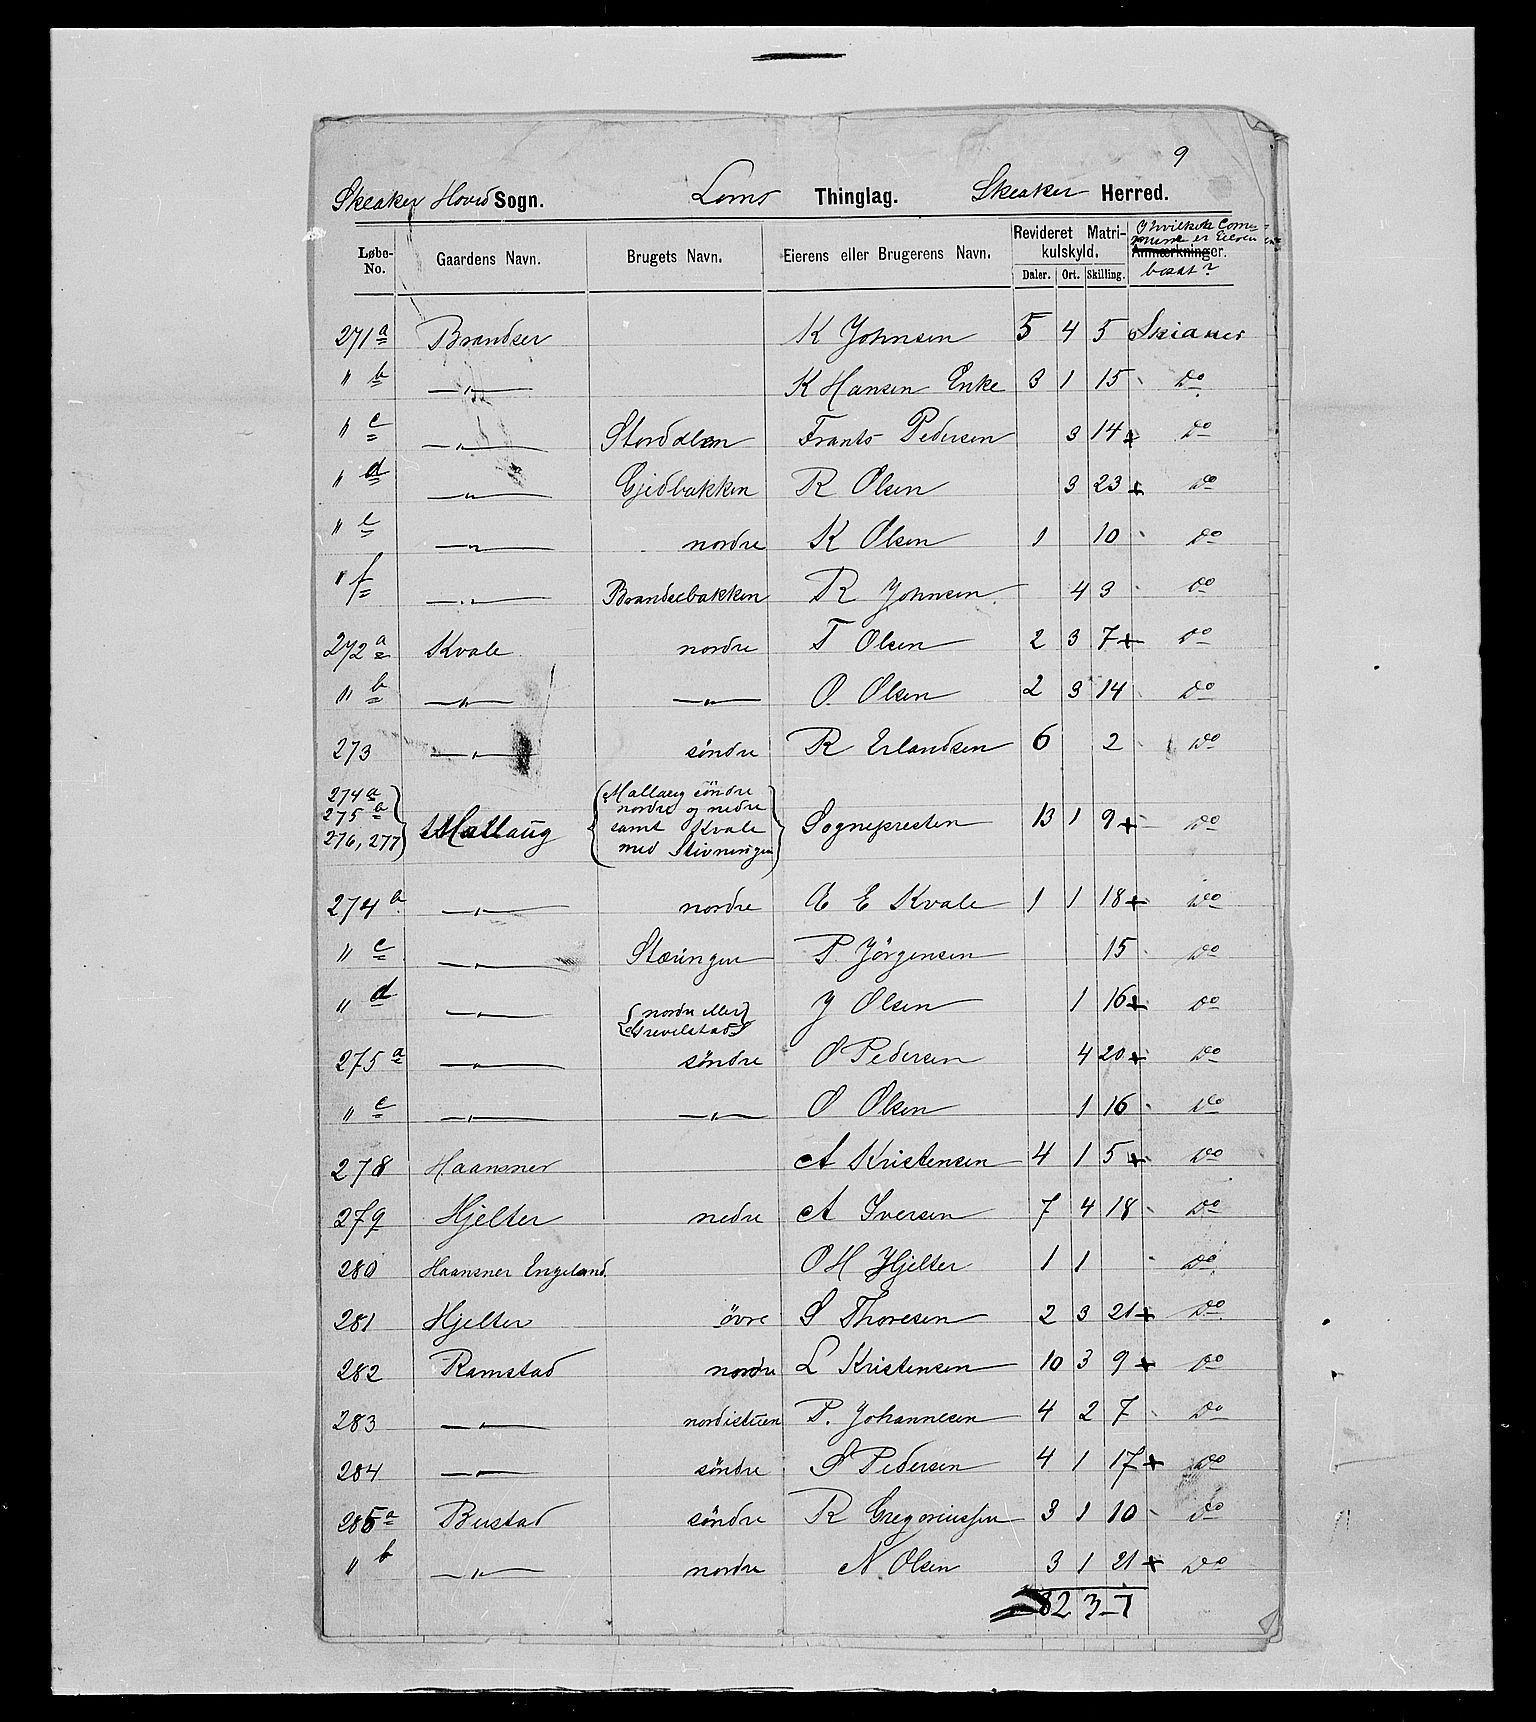 9
Skeaker Hoved Sogn. Loms Thinglag. Skeaker Herred.
Løbe-No. Gaardens Navn. Brugets Navn. Eierens eller Brugerens Navn. Revideret Matrikulskyld. Daler. Ort. Skilling. Anmærkninger. I hvilken Commune er Eieren bosat?
271 a Brandser K Johnsen 5 4 5 Skiaker
" b —"— K Hansen Enke 3 1 15 Do
" c —"— Stordalen Frants Pedersen 3 14 + Do
" d —"— Gjedbakken R Olsen 3 23 + Do
" e —"— nordre K Olsen 1 10 Do
" f —"— Brandsebakken R Johnsen 4 3 Do
272 a Kvale nordre T Olsen 2 3 7 + Do
" b —"— —"— O. Olsen 2 3 14 Do
273 —"— söndre R Erlandsen 6 2 Do
274 a
275 a
276, 277 Mallaug Mallaug söndre
nordre og nedre
samt Kvale
med Stivningen Sognepresten 13 1 9 + Do
274 b —"— nordre E Kvale 1 1 18 + Do
" c —"— Stæringen P Jörgensen 15 Do
" d —"— nordre eller
Grevelstad J Olsen 1 16 + Do
275 a —"— söndre O Pedersen 4 20 + Do
" c —"— —"— O Olsen 1 16 Do
278 Haansner A Kristensen 4 1 5 + Do
279 Hjelter nedre A Iversen 7 4 18 Do
280 Haansner Engeland O H Hjelter 1 1 Do
281 Hjelter övre S Thoresen 2 3 21 + Do
282 Ramstad nordre L Kristensen 10 3 9 + Do
283 —"— nordistuen P. Johannesen 4 2 7 Do
284 —"— söndre S Pedersen 4 1 17 + Do
285 a Bustad söndre R Gregoriussen 3 1 10 Do
" b —"— nordre N Olsen 3 1 21 + Do
82 3 7